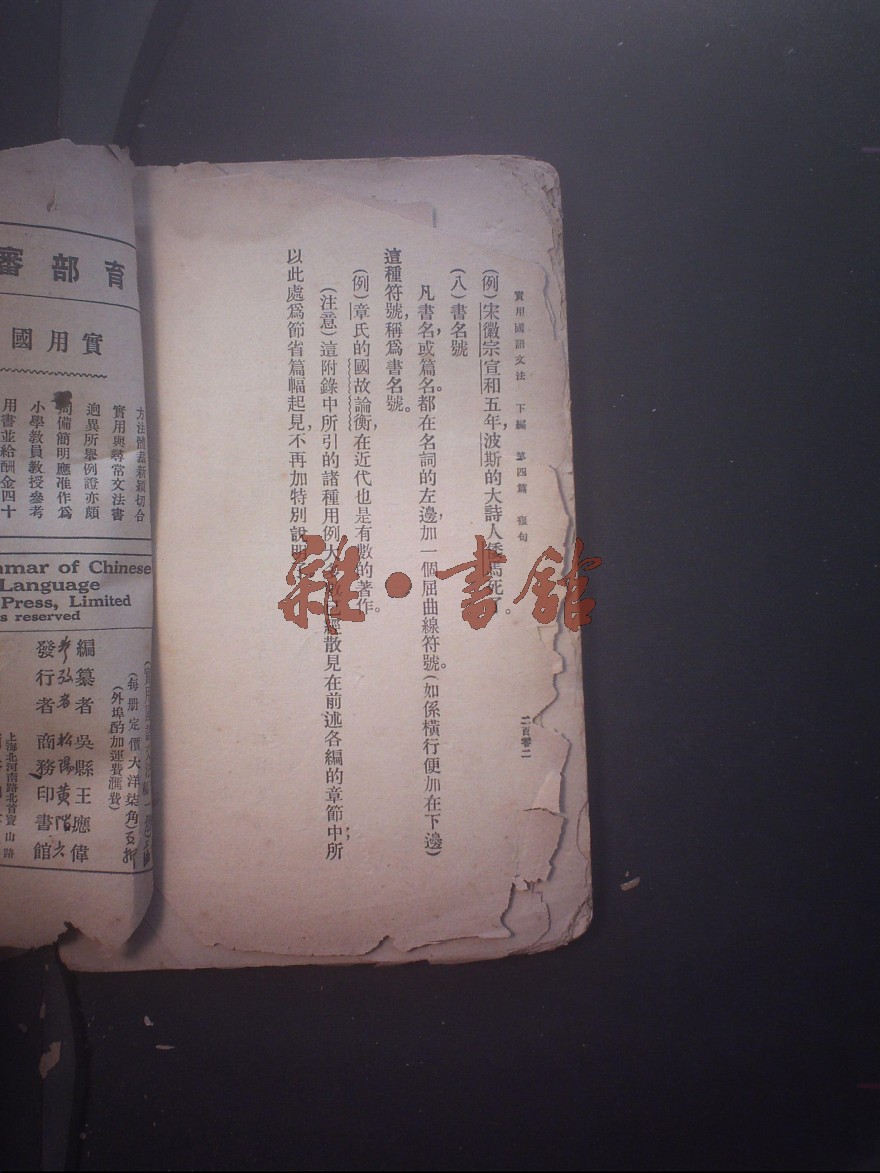 實用國語文法 下編 第四篇 複句 二百零二
(例)宋徽宗宣和五年,波斯的大詩人倭馬死了。
(八)書名號
凡書名,或篇名。都在名詞的左邊,加一個屈曲線符號。(如係橫行便加在下邊)
這種符號,稱爲書名號。
(例)章氏的國故論衡,在近代也是有數的著作。
(注意)這附錄中所引的諸種用例大已經散見在前述各編的章節中所;
以此處爲節省篇幅起見,不再加特別說明
雜·書館
育部審
實用國
方法體裁新穎切合
實用與尋常文法書
逈異所舉例證亦頗
備簡明應准作爲
小學教員教授參考
用書並給酬金四十
mmar of Chinese
Language
Press, Limited
s reserved
(每册定價大洋柒角)
(外埠酌加運費滙費)
編纂者 吳縣王應偉
發行者 商務印書館
上海北河南路北首寶山路